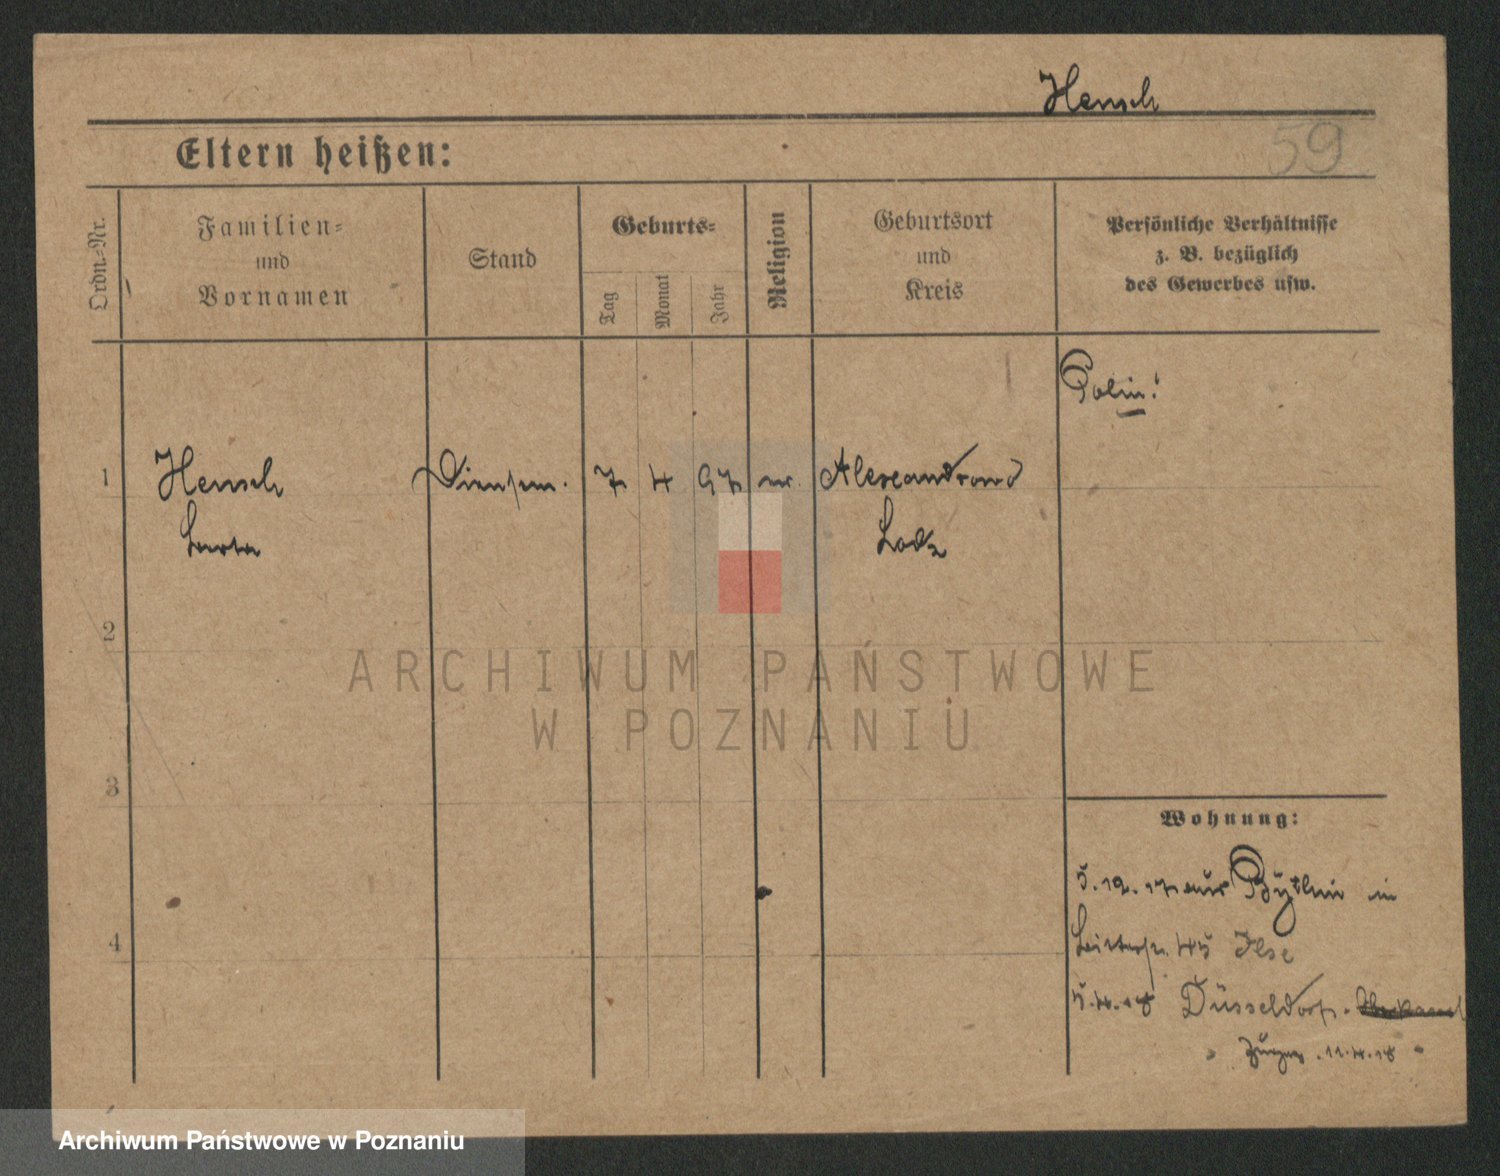 Hensch
59
Eltern heißen:
Ordn.-Nr.
Familien-
und
Vornamen
Stand
Geburts-
Tag
Monat
Jahr
Religion
Geburtsort
und
Kreis
Persönliche Verhältnisse
z. B. bezüglich
des Gewerbes usw.
Polin!
1
Hensch
7
4
97
Alexandrowo
Lodz
2
ARCHIWUM PAŃSTWOWE
W POZNANIU
3
Wohnung:
5.12.17 aus in
4
45 Ilse
5.4.18 Düsseldorf
11.4.18
Archiwum Państwowe w Poznaniu